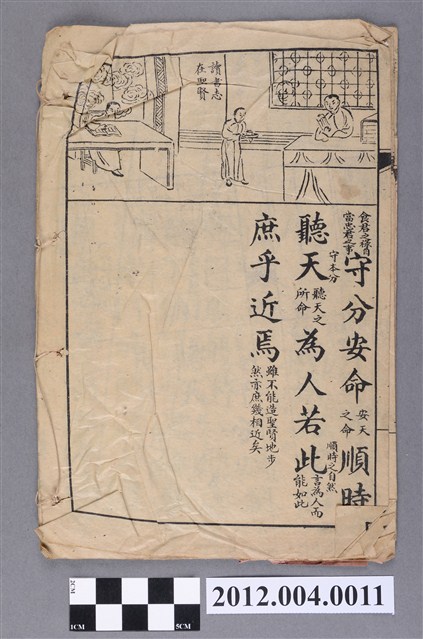 讀書志
在聖賢
食君之祿自
當忠君之事
守分安命順時
守本分
安天
之命
順時之自然
聽天為人若此
聽天之
所命
言為人而
能如此
庶乎近焉
雖不能造聖賢地步
然亦庶幾相近矣
1CM
5CM
2012.004.0011